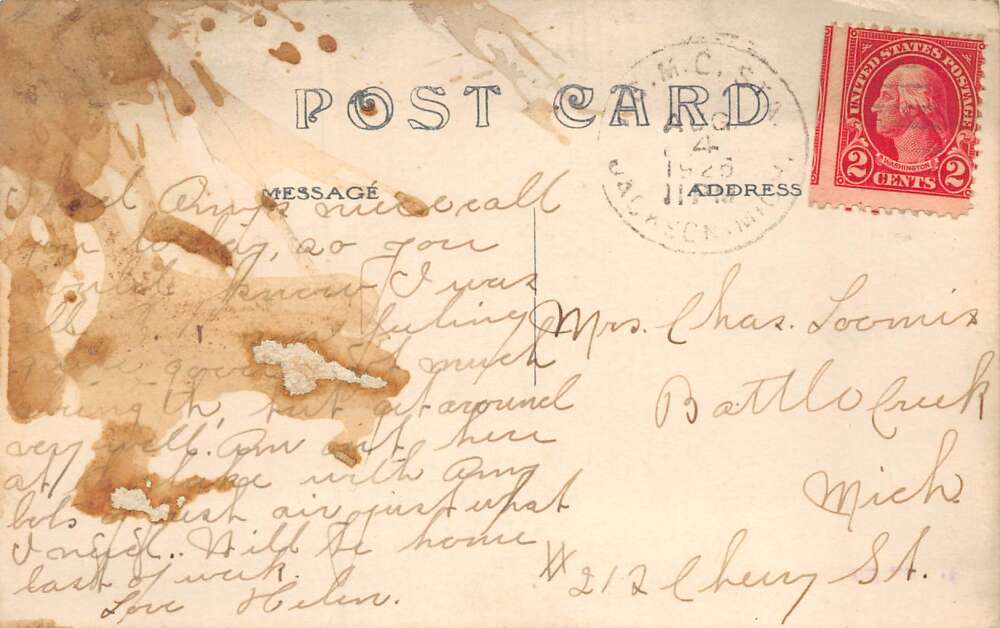 POST CARD
M.C. STA.
AUG
4
1926
JACKSON, MICH.
UNITED STATES POSTAGE
WASHINGTON
2 CENTS 2
MESSAGE
ADDRESS
Had Amy's niece call
you to day, so you
would know I was
all feeling
good. much
but get around
very well. Am out here
at lake with Amy
lots of just air just what
I need. Will be home
last of week.
Love Helen.
Mrs. Chas. Loomis
Battle Creek
Mich.
# 212 Cherry St.